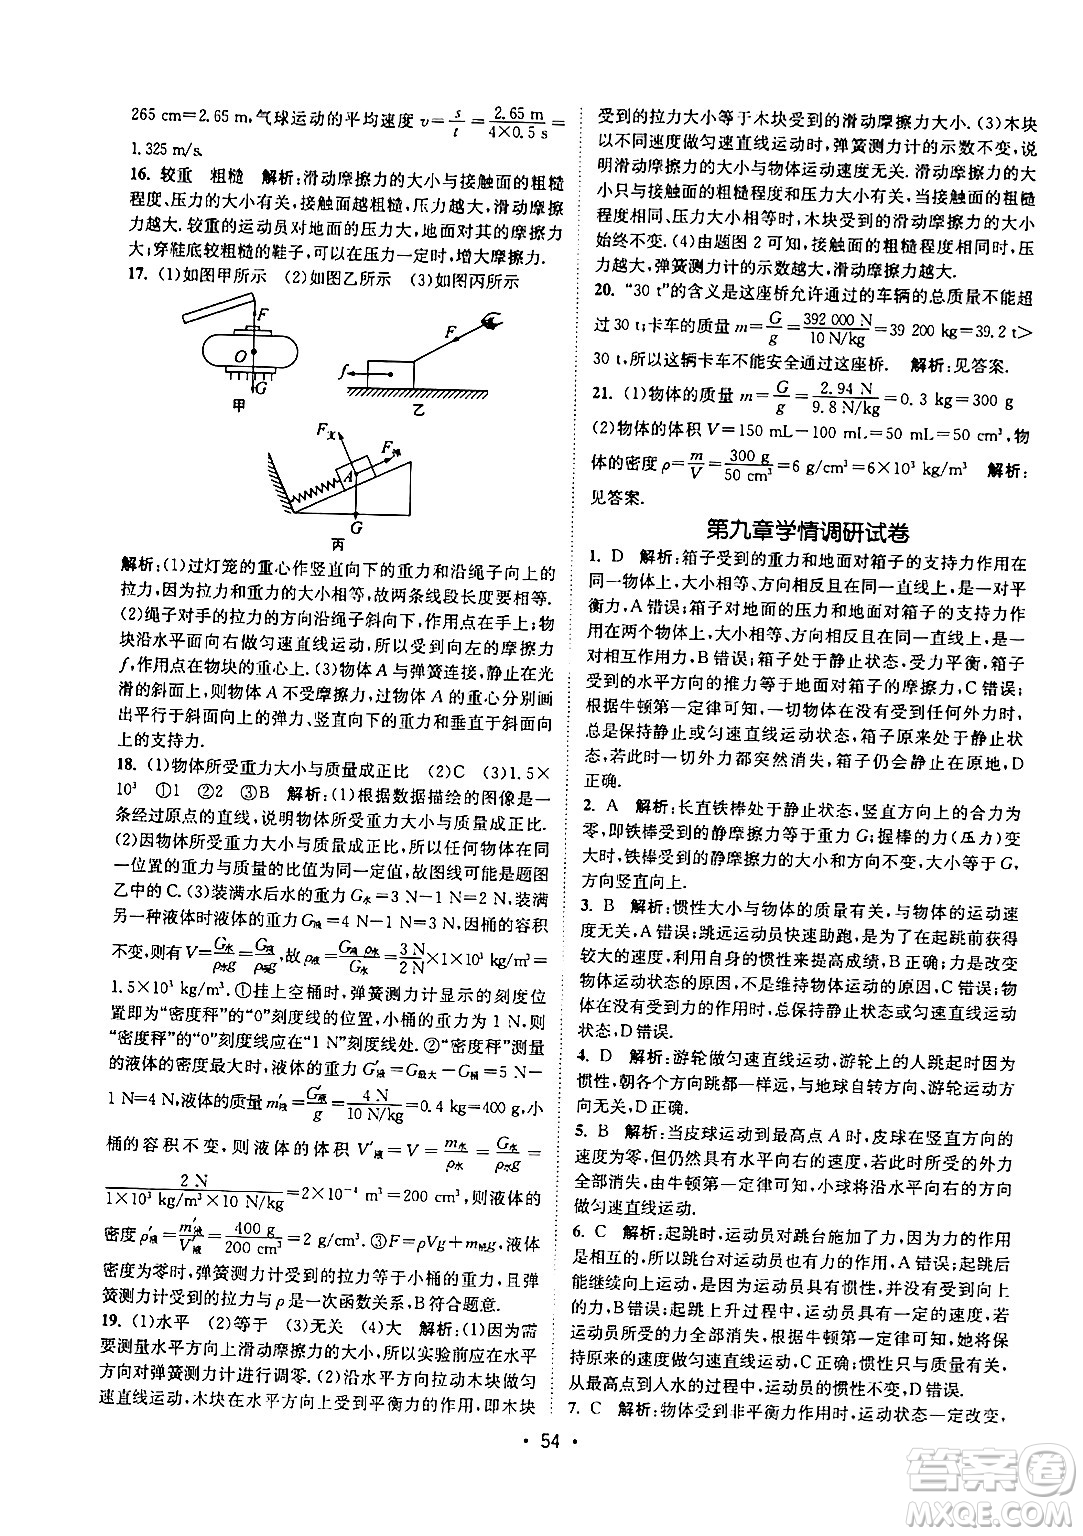 265 cm=2.65 m,气球运动的平均速度 v=s/t=2.65 m/(4×0.5 s)=
1.325 m/s.
16. 较重 粗糙 解析:滑动摩擦力的大小与接触面的粗糙
程度、压力的大小有关,接触面越粗糙,压力越大,滑动摩擦
力越大.较重的运动员对地面的压力大,地面对其摩擦力
大;穿鞋底较粗糙的鞋子,可以在压力一定时,增大摩擦力.
17. (1)如图甲所示 (2)如图乙所示 (3)如图丙所示
F
O
G
甲
F
f
乙
F支
F弹
A
G
丙
解析:(1)过灯笼的重心作竖直向下的重力和沿绳子向上的
拉力,拉力和重力的大小相等,故两条线段长度要相等.
(2)绳子对手的拉力的方向沿绳子斜向下,作用点在手上;物
块沿水平面向右做匀速直线运动,所以受到向左的摩擦力
f,作用点在物块的重心上.(3)物体 A 与弹簧连接,静止在光
滑的斜面上,则物体 A 不受摩擦力,过物体 A 的重心分别画
出平行于斜面向上的弹力、竖直向下的重力和垂直于斜面向
上的支持力.
18. (1)物体所受重力大小与质量成正比 (2)C (3)1.5×
10³ ①1 ②2 ③B 解析:(1)根据数据描绘的图像是一
条过原点的直线,说明物体所受的重力大小与质量成正比.
(2)因物体所受的重力大小与物体的质量成正比,所以物体
的重力与质量的比值为同一定值,故图线可能是题图
乙中的 C.(3)装满水后水的重力 G水=3 N-1 N=2 N,装满
另一种液体时液体的重力 G液=4 N-1 N=3 N,因桶的容积
不变,则有 V=G水/ρ水g=G液/ρ液g,故 ρ液=G液ρ水/G水=3 N/2 N×1×10³ kg/m³=
1.5×10³ kg/m³.①挂上空桶时,弹簧测力计显示的刻度位
置即为“密度秤”的“0”刻度线的位置,小桶的重力为 1 N,则
“密度秤”的“0”刻度线应该在 1 N 刻度线处.②“密度秤”测量
的液体的密度最大时,液体的重力 G′液=G最大-G桶=5 N-
1 N=4 N,液体的质量 m′液=G′液/g=4 N/(10 N/kg)=0.4 kg=400 g,小
桶的容积不变,则液体的体积 V′液=V=m水/ρ水=G水/ρ水g=
2 N/(1×10³ kg/m³×10 N/kg)=2×10⁻⁴ m³=200 cm³,则液体的
密度 ρ′液=m′液/V′液=400 g/200 cm³=2 g/cm³.③F=ρVg+m桶g,液体
密度为零时,弹簧测力计受到的拉力等于小桶的重力,且弹
簧测力计受到的拉力与 ρ 是一次函数关系,B 符合题意.
19. (1)水平 (2)等于 (3)无关 (4)大 解析:(1)因为需
要测量水平方向上滑动摩擦力的大小,所以实验前应在水平
方向对弹簧测力计进行调零.(2)沿水平方向拉动木块做匀
速直线运动,木块在水平方向上受到平衡力的作用,即木块
受到的拉力大小等于木块受到的滑动摩擦力大小.(3)木块
以不同速度做匀速直线运动,弹簧测力计的示数不变,说
明滑动摩擦力的大小与物体运动速度无关.滑动摩擦力的大
小只与接触面的粗糙程度和压力大小有关,当接触面的粗
糙程度相同、压力大小一定时,木块受到的滑动摩擦力大小
始终不变.(4)由题图 2 可知,接触面的粗糙程度相同时,压
力越大,弹簧测力计的示数越大,滑动摩擦力越大.
20. “30 t”的含义是这座桥允许通过的车辆的总质量不能超
过 30 t;卡车的质量 m=G/g=392 000 N/(10 N/kg)=39 200 kg=39.2 t>
30 t,所以这辆卡车不能安全通过这座桥. 解析:见答案.
21. (1)物体的质量 m=G/g=2.94 N/(9.8 N/kg)=0.3 kg=300 g
(2)物体的体积 V=150 mL-100 mL=50 mL=50 cm³,物
体的密度 ρ=m/V=300 g/50 cm³=6 g/cm³=6×10³ kg/m³ 解析:
见答案.
第九章学情调研试卷
1. D 解析:箱子受到的重力和地面对箱子的支持力作用在
同一物体上,大小相等,方向相反且在同一直线上,是一对平
衡力,A 错误;箱子对地面的压力和地面对箱子的支持力作
用在两个物体上,大小相等,方向相反,作用在同一直线上,是一
对相互作用力,B 错误;箱子处于静止状态,受力平衡,箱子
受到的水平方向的推力等于地面对箱子的摩擦力,C 错误;
根据牛顿第一定律可知,一切物体在没有任何外力作用时,
总是保持静止或匀速直线运动状态,箱子原来处于静止状
态,若此时一切外力都突然消失,箱子仍会静止在原地,D
正确.
2. A 解析:长直铁棒处于静止状态,竖直方向上的合力为
零,即铁棒受到的静摩擦力等于重力 G;握棒的力(压力)变
大时,铁棒受到的静摩擦力的大小和方向不变,大小等于 G,
方向竖直向上.
3. B 解析:惯性大小与物体的质量有关,与物体的运动速
度无关,A 错误;跳远运动员快速助跑,是为了在起跳前获得
较大的速度,利用自身的惯性提高成绩,B 正确;力是改变
物体运动状态的原因,不是维持物体运动的原因,C 错误;物
体在没有受到外力作用时,总保持静止状态或匀速直线运动
状态,D 错误.
4. D 解析:游轮做匀速直线运动,游轮上的人跳起时因为
惯性,朝各个方向跳都一样远,与地球自转方向、游轮运动方
向无关,D 正确.
5. B 解析:当皮球运动到最高点 A 时,皮球在竖直方向的
速度为零,但仍然具有水平向右的速度,若所受外力此时全
部消失,由牛顿第一定律可知,小球将沿水平向右的方向
做匀速直线运动.
6. C 解析:起跳时,运动员对跳台施加了力,因为力的作用
是相互的,所以跳台对运动员也有力的作用,A 错误;起跳后
能继续向上运动,是因为运动员具有惯性,并没有受到惯性
的作用,B 错误;起跳上升过程中,运动员有一定的速度,若
运动员所受力全部消失,根据牛顿第一定律可知,她将保
持原来的速度做匀速直线运动,C 正确;惯性只与质量有关,
从最高点到入水的过程中,运动员的惯性不变,D 错误.
7. C 解析:物体受到非平衡力作用时,运动状态一定改变,
·54·
答案圈
MXQE.COM